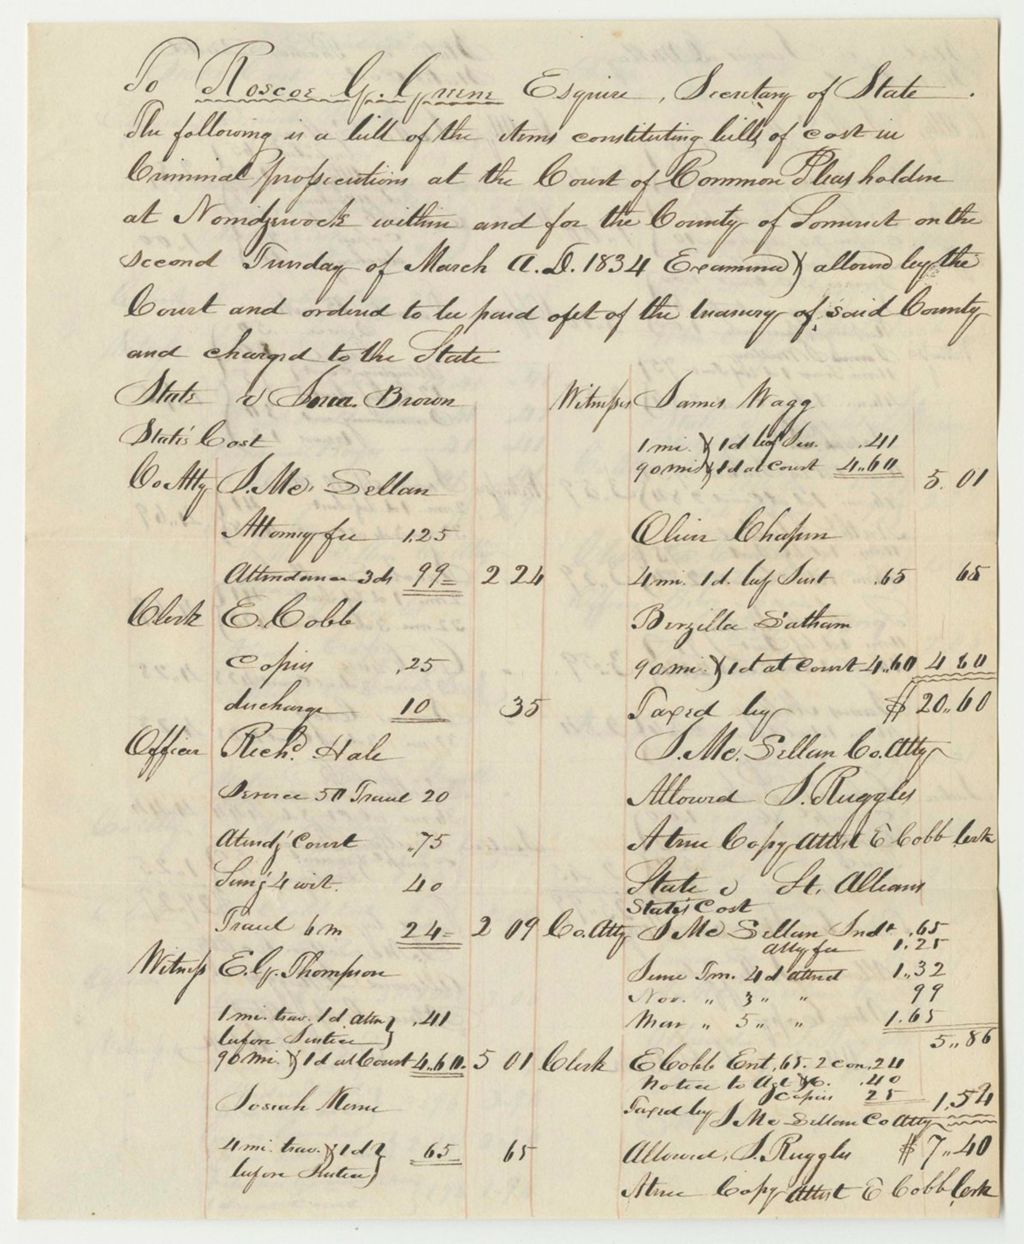 To Roscoe G. Greene Esquire, Secretary of State.
The following is a bill of the items constituting bills of cost in
Criminal prosecutions at the Court of Common Pleas holden
at Norridgewock within and for the County of Somerset on the
second Tuesday of March A.D. 1834 Examined & allowed by the
Court and ordered to be paid out of the treasury of said County
and charged to the State
State v Brown
State's Cost
Co Atty J. Mc. Lellan
Attorney fee 1.25
Attendance 3 ds 99 = 2 24
Clerk E. Cobb
Copies .25
discharge 10 35
Officer Richd. Hale
Service 50 Travel 20
Atendg Court .75
Sung 4 wit. 40
Travel 6 m 24 = 2 09
Witness E. G. Thompson
1 mi. trav. 1 d. atten .41
before Justice
90 mi. & 1 d at Court 4.60. 5 01
Josiah
4 mi. trav. & 1 d 65 65
before Justice
Witnesses James Wagg
1 mi. & 1 d bef Jus. .41
90 mi & 1 d at Court 4.60 5.01
Oliver Chapin
4 mi. 1 d. bef Just .65 65
Berzilla Latham
90 mi. & 1 d at Court 4.60 4 60
Taxed by $ 20.60
J. Mc. Lellan Co. Atty
Allowed J. Ruggles
A true Copy Attest E Cobb Clerk
State v St. Albans
State's Cost
Co. Atty J Mc Lellan Indt .65
atty fee 1.25
June Tm. 4 d attend 1.32
Nov. " 3 " " 99
Mar " 5 " " 1.65
5.86
Clerk E Cobb Ent, 65. 2 con, 24
notice to Agt &c. .40
Copies 25 1,54
Taxed by J Mc Lellan Co Atty
Allowed, J. Ruggles $ 7.40
A true Copy Attest E Cobb Clerk